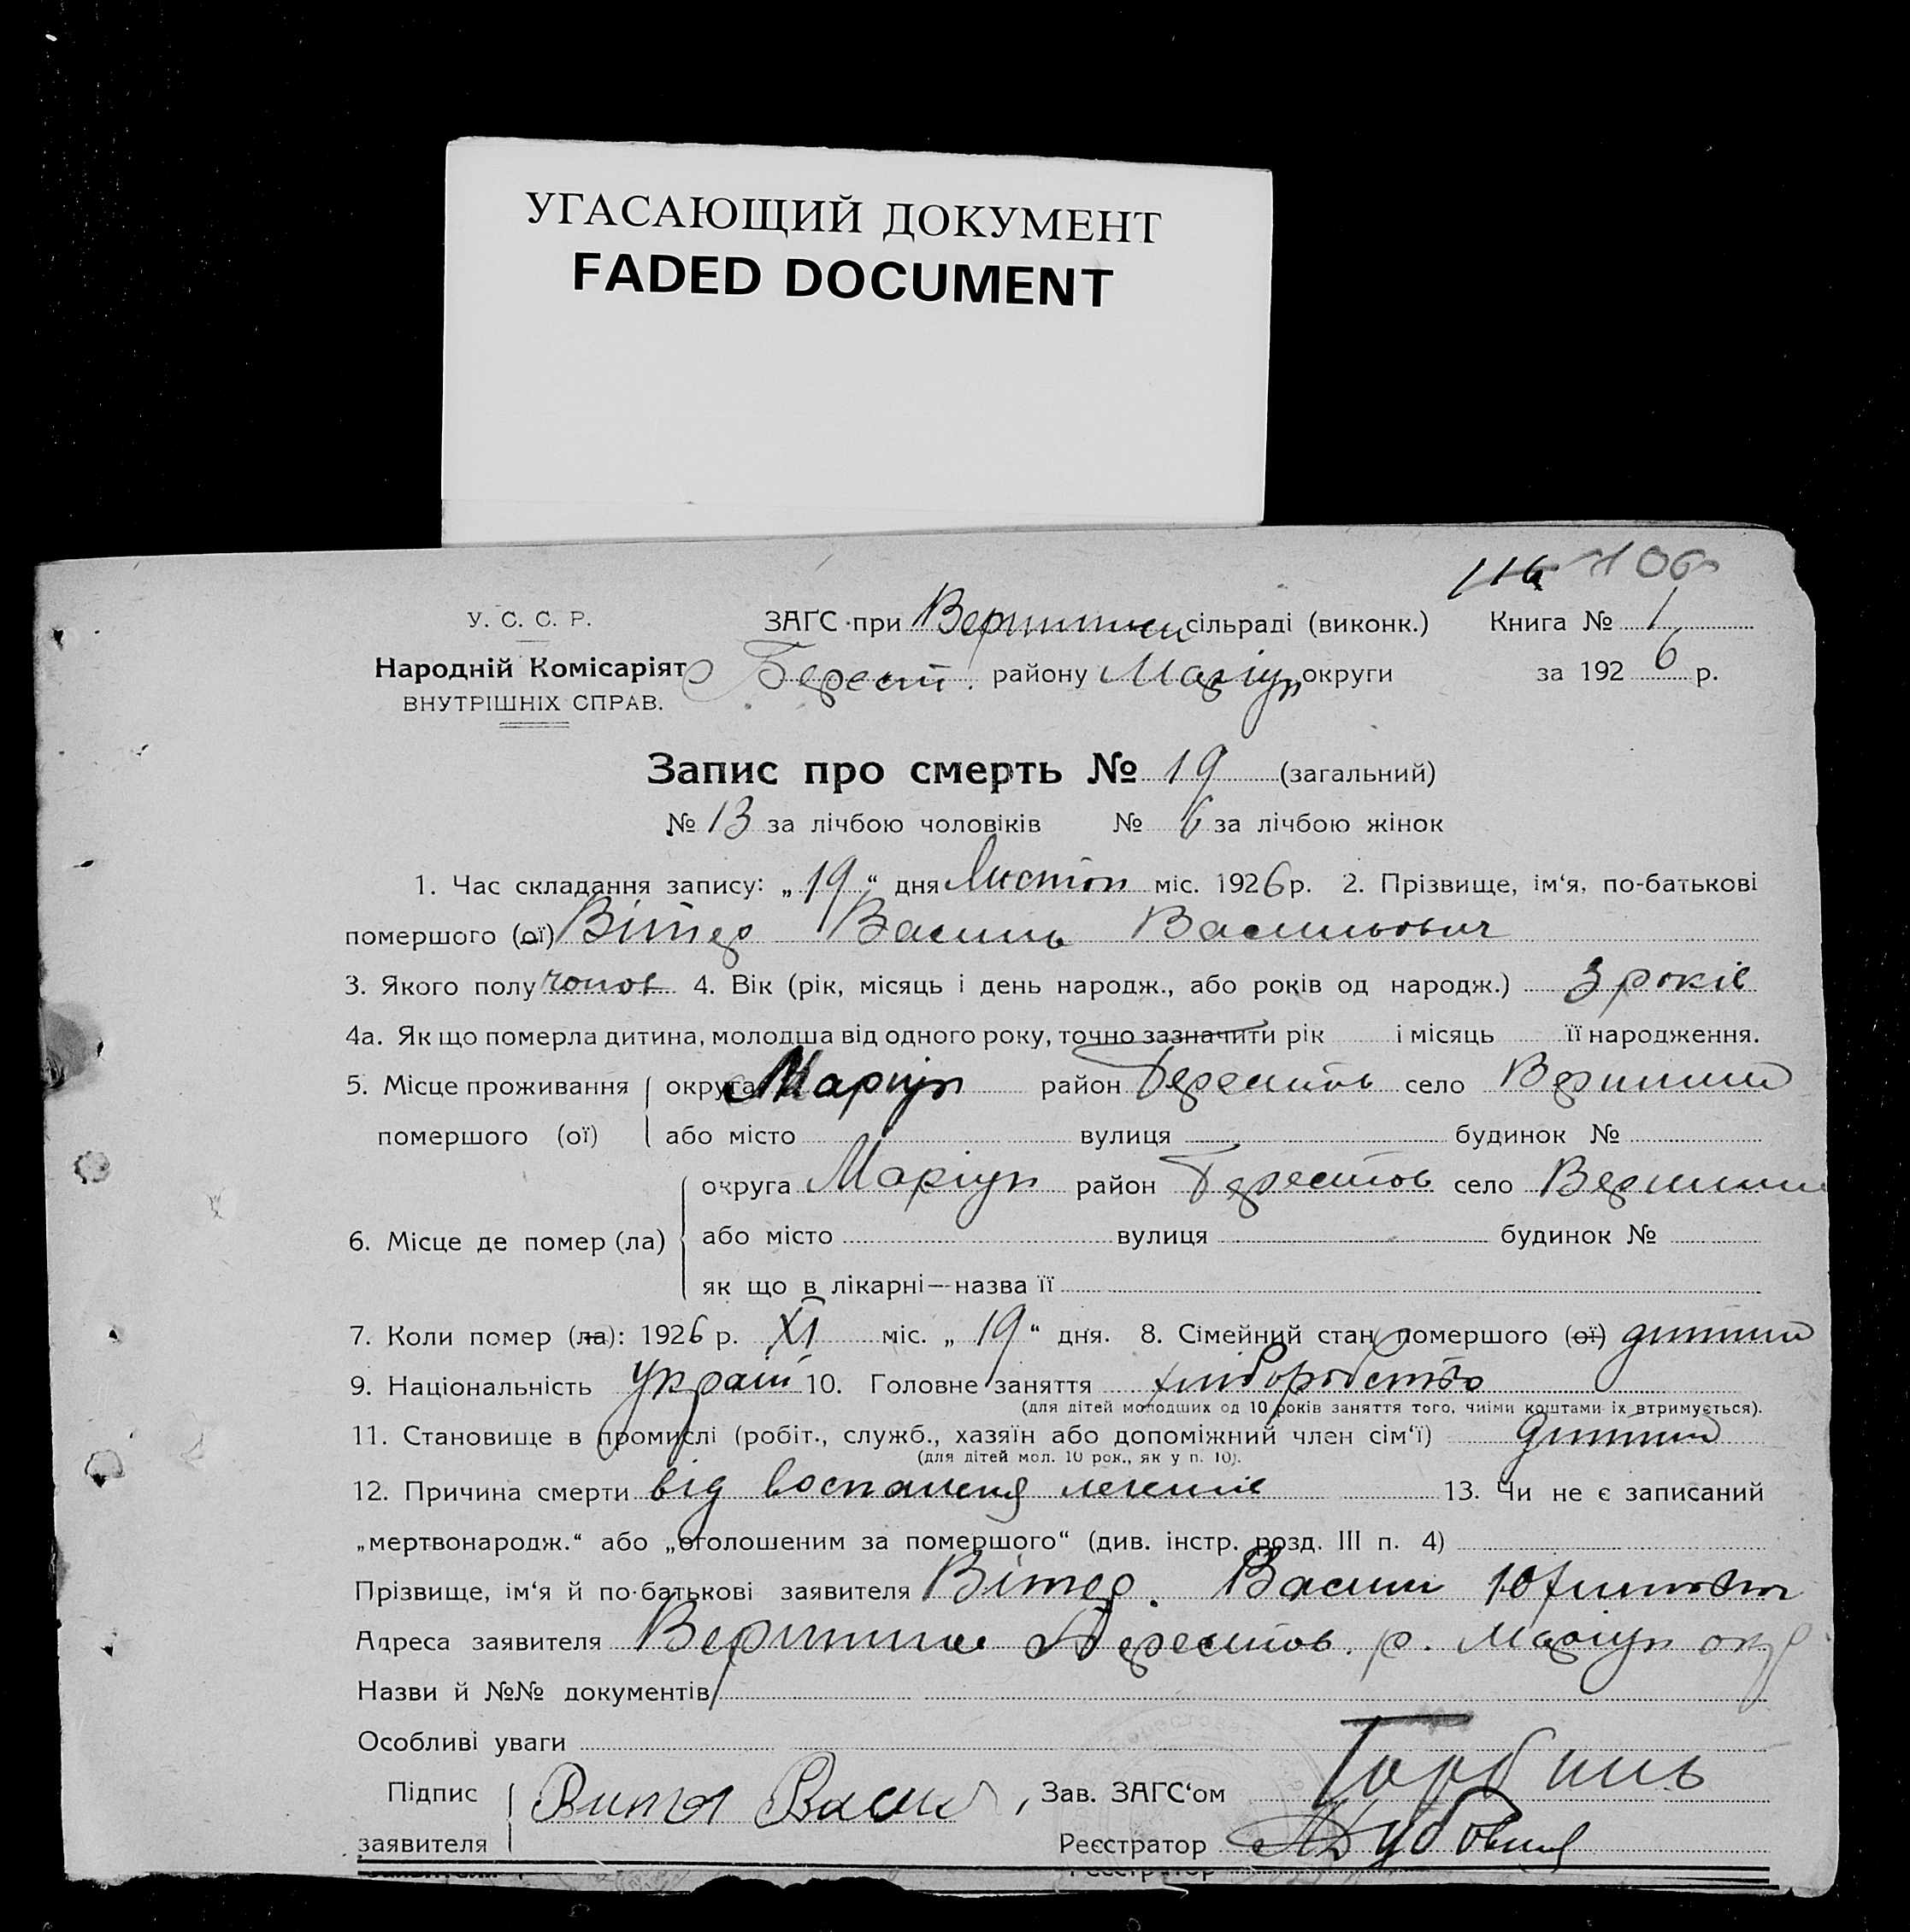 УГАСАЮЩИЙ ДОКУМЕНТ
FADED DOCUMENT
116 106
У. С. С. Р. ЗАГС при Вершини сільраді (виконк.) Книга № 1
Народній Комісаріят Берест. району Маріуп округи за 1926 р.
ВНУТРІШНІХ СПРАВ.
Запис про смерть № 19 (загальний)
№ 13 за лічбою чоловіків № 6 за лічбою жінок
1. Час складання запису: „19“ дня Листоп міс. 1926 р. 2. Прізвище, ім‘я, по-батькові
помершого (ої) Вітер Василь Васильович
3. Якого полу чолов 4. Вік (рік, місяць і день народж., або років од народж.) 3 років
4а. Як що померла дитина, молодша від одного року, точно зазначити рік і місяць її народження.
5. Місце проживання округа Маріуп район Берестов село Вершини
помершого (ої) або місто вулиця будинок №
округа Маріуп район Берестов село Вершини
6. Місце де помер (ла) або місто вулиця будинок №
як що в лікарні—назва її
7. Коли помер (ла): 1926 р. XI міс. „19“ дня. 8. Сімейний стан помершого (ої) дитина
9. Національність україн 10. Головне заняття хліборобство
(для дітей молодших од 10 років заняття того, чиїми коштами їх втримується).
11. Становище в промислі (робіт., служб., хазяїн або допоміжний член сім‘ї) дитина
(для дітей мол. 10 рок., як у п. 10).
12. Причина смерти від воспаленя легенів 13. Чи не є записаний
„мертвонародж.“ або „оголошеним за помершого“ (див. інстр. розд. III п. 4)
Прізвище, ім‘я й по-батькові заявителя Вітер. Васил Юхимович
Адреса заявителя Вершини Берестов. р. Маріуп окр
Назви й №№ документів
Особливі уваги
Підпис Витер Васил, Зав. ЗАГС‘ом Горбань
заявителя Реєстратор